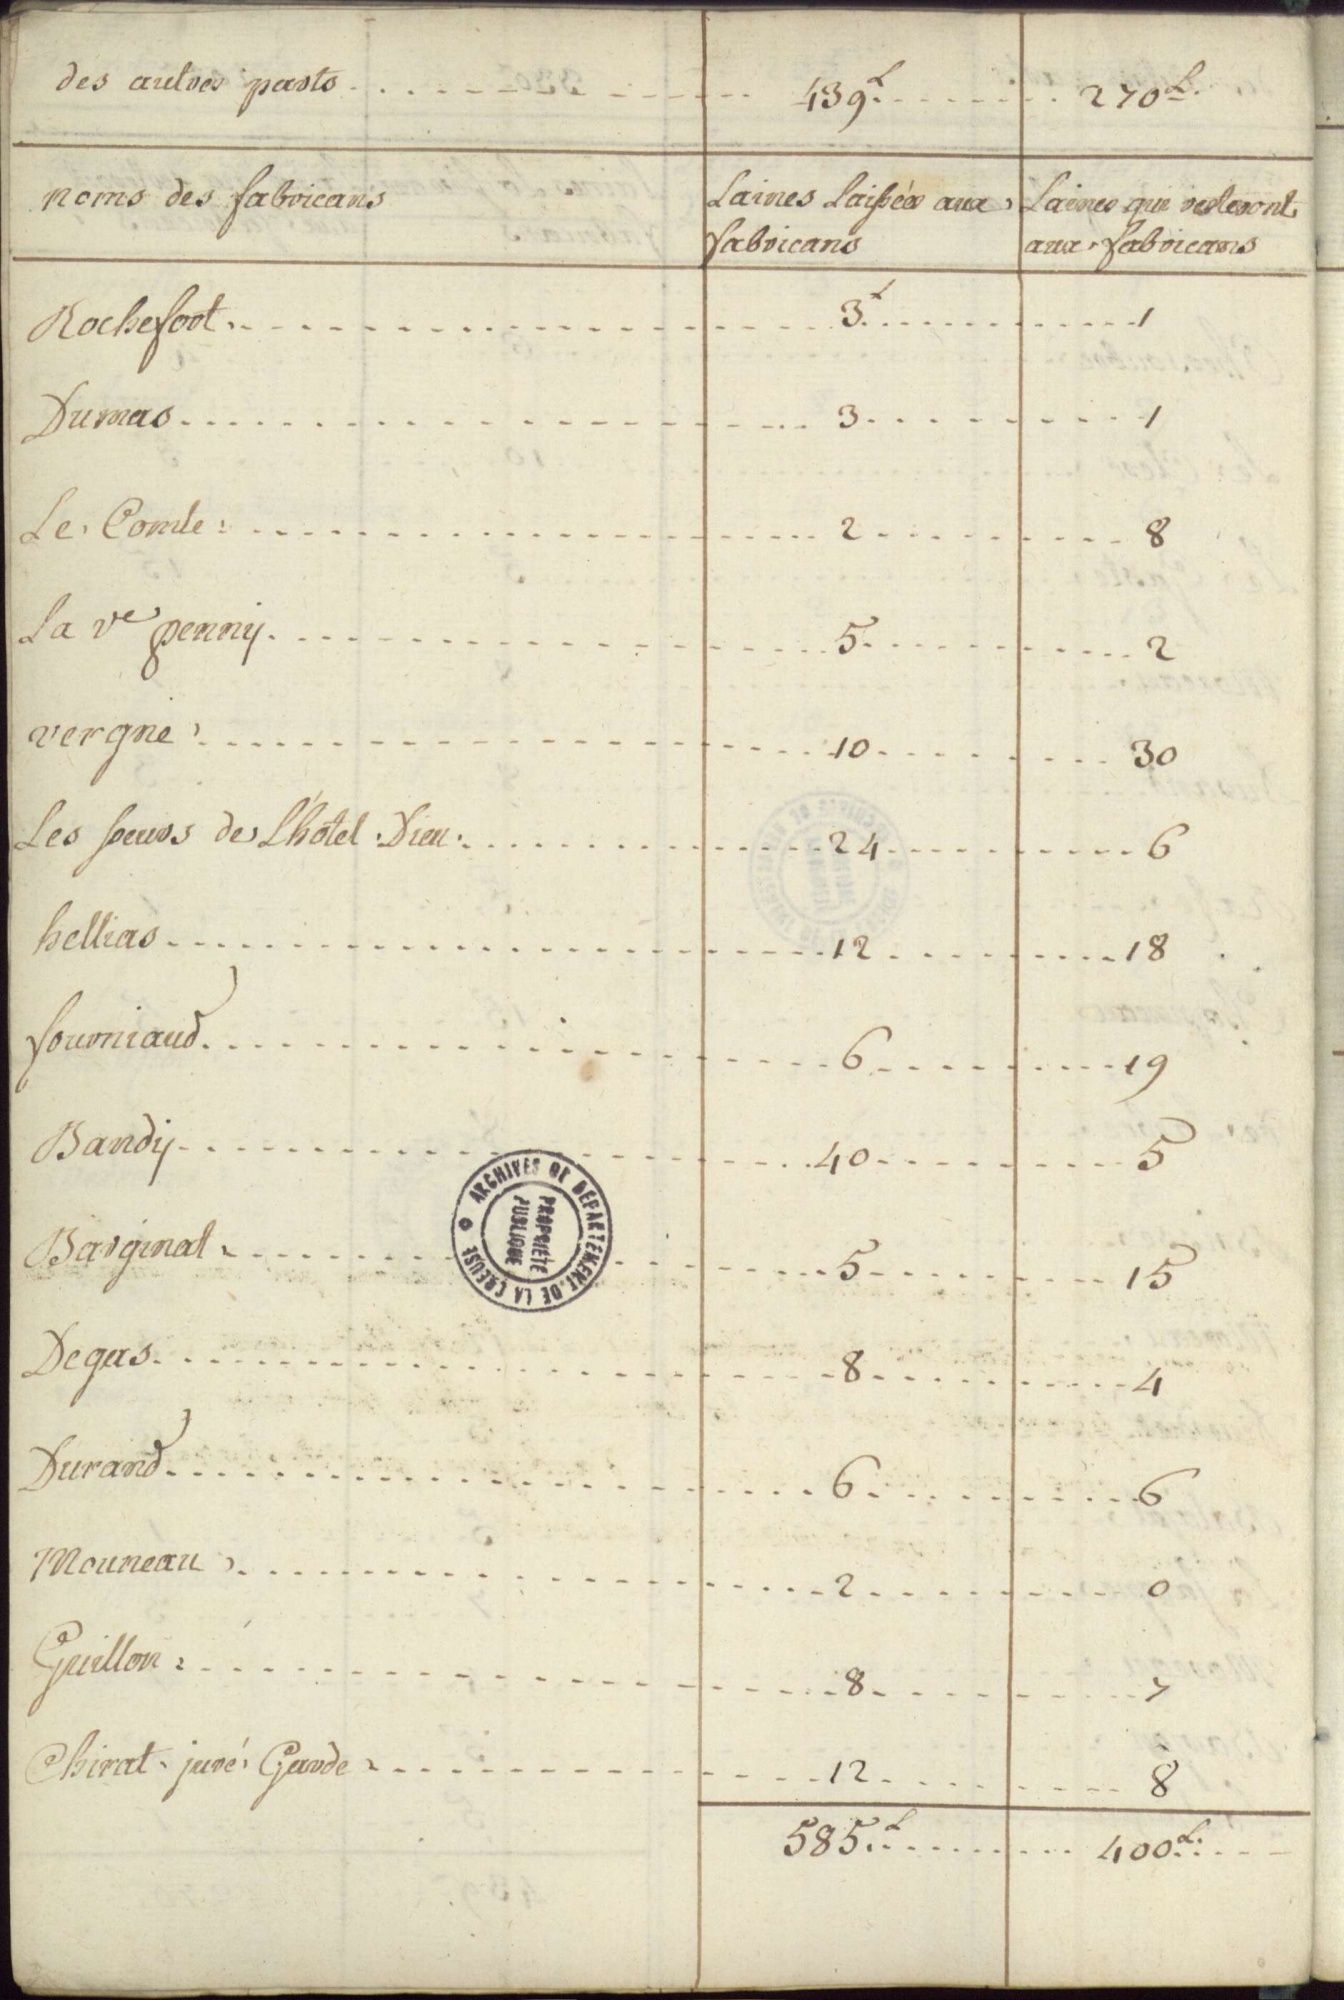 des autres parts 439 L. 270 L.
noms des fabricans Laines Laissées aux fabricans Laines qui resteront aux fabricans
Rochefort 3 L 1
Dumas 3 1
Le Comte 2 8
La ve penny 5 2
vergne 10 30
Les soeurs de L'hôtel Dieu 24 6
hellias 12 18
fourniaud 6 19
Bandy 40 5
Barginat 5 15
Degas 8 4
Durand 6 6
Mouneau 2 0
Guillon 8 7
Chirat juré Garde 12 8
585 L 400 L.
ARCHIVES OF DEPARTEMENT DE LA CREUSE
PROPRIETE
PUBLIQUE